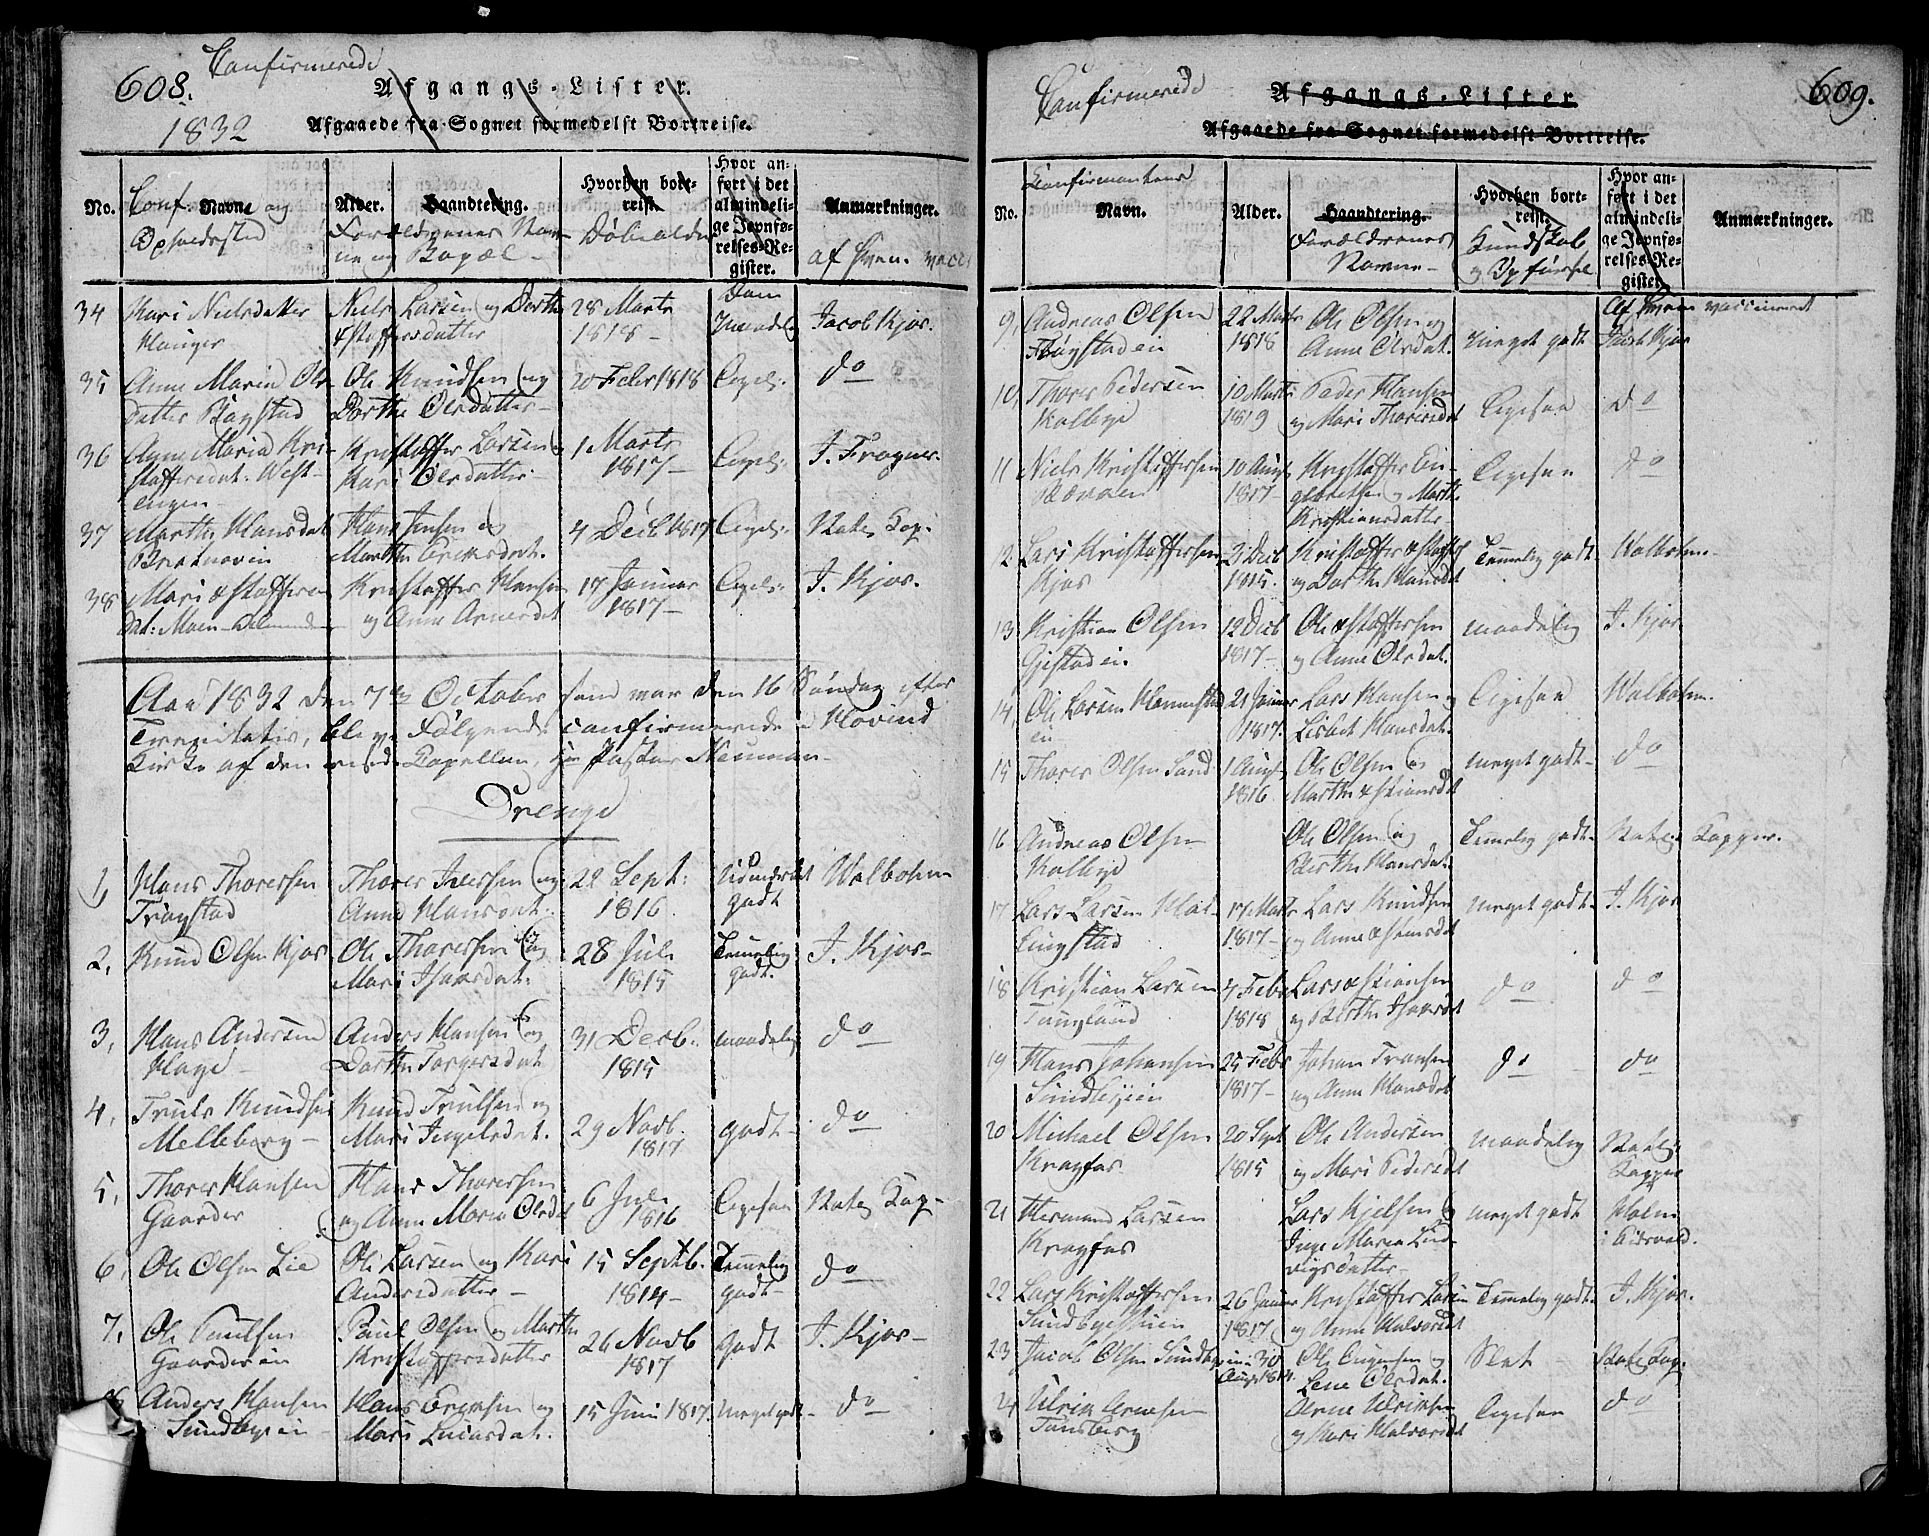 608.
Confirmerede
1832
Afgangs-Lister.
Afgaaede fra Sognet formedelst Bortreise.
No.
Conf. Navne og
Opholdssted
Alder. Haandtering.
Forældrenes Nav-
ne og Bopæl -
Hvorhen bort-
reist.
Døbealder
Hvor an-
ført i det
almindeli-
ge Jevnfø-
relses-Re-
gister.
Dom
Anmærkninger.
af hvem vacc
34 Kari Nielsdatter
Niels Larsen og Dorthe
Kstoffersdatter
28 Marts
1818 -
Jacob Kjos.
35 Anne Maria Ols-
datter Bogstad
Ole Knudsen og
Dorthe Olsdatter -
20 Febr 1818
Do
36 Anne Maria Kri-
stoffersdat: West-
engen
Kristoffer Larsen og
Kari Olsdatter -
1 Marts
1817 -
J. Frogner.
37 Marthe Hansdat
Hans Jensen og
Marthe Eriksdat.
4 Decb 1817
38 Mari Kstoffers
dat: Moen
Kristoffer Hansen
og Anne Arnesdat
17 Januar
1817 -
J. Kjos.
Aar 1832 den 7de October som var den 16 Søndag efter
Trinitatis, bleve Følgende confirmerede i Hovind
Kirke af den resid. Capellan, Hr. Pastor Neuman -
Drenge
1, Hans Thoresen
Trøgstad
Thores Iversen og
Anne Hansdat:
22 Sept:
1816
Udmærket
godt
Walbohm
2, Knud Olsen Kjos
Ole Thoresen og
Mari Isaksdat.
28 Juli
1815
Temmelig
godt.
J. Kjos -
3, Hans Andersen
Hage -
Anders Hansen og
Dorthe Torgersdat
31 Decb.
1815
maadelig
do
4, Truls Knudsen
Melleborg -
Knud Trulsen og
Mari Ingelsdat.
29 Novb.
1817
godt -
do
5, Thores Hansen
Gaarder
Hans Thoresen
og Anne Maria Olsdat
6 Juli
1816
Ligesaa
6, Ole Olsen Lie
Ole Larsen og Kari
Andersdatter -
15 Septb.
1814 -
Temmelig
godt -
do
7, Ole Paulsen
Gaarderein
Paul Olsen og Marthe
Kristoffersdatter
26 Novb
1817
godt
J. Kjos -
8 Anders Hansen
Sundbyein -
Hans Eriksen og
Mari Larsdat.
15 Juni 1817
Meget godt -
do
609.
Confirmerede
Afgangs-Lister
Afgaaede fra Sognet formedelst Bortreise.
No.
Confirmantens
Navn.
Alder.
Haandtering.
Forældrenes
Navne -
Hvorhen bort-
reist.
Kundskab
og Opførsel
Hvor an-
ført i det
almindeli-
ge Jevnfø-
relses-Re-
gister.
Anmærkninger.
Af hvem vaccineret
9, Andreas Olsen
22 Marts
1818
Ole Olsen og
Anne Olsdat.
meget godt
Jacob Kjos
10, Thores Pedersen
Kolbye
10 Marts
1819
Peder Hansen
og Mari Thoresdat
Ligesaa
do
11 Niels Kristoffersen
10 Aug
1817 -
Kristoffer En-
gebretsen og Marthe
Kristiansdatter -
Ligesaa
do
12 Lars Kristoffersen
Kjos
21 Decb
1815.
Kristoffer Kstoffers
og Dorthe Hansdat
Temmelig godt
Walbohm -
13 Kristian Olsen
Gjestadein.
12 Decb
1817 -
Ole Kstoffersen
og Anne Olsdat.
maadelig
J. Kjos
14, Ole Larsen Hammerstad
ein
21 Januar
1817.
Lars Hansen og
Lisbet Hansdat.
Ligesaa
Walbohm.
15 Thores Olsen Sand
1 Aug
1816
Ole Olsen og
Marthe Kstiansdat
meget godt -
do
16 Andreas Olsen
Kolbye
Ole Olsen og
Berthe Hansdat.
Temmelig godt.
17 Lars Larsen
17 Marts
1817 -
Lars Knudsen
og Anne
meget godt -
J. Kjos
18 Kristian Larsen
7 Febr
1818
Lars Kstiansen
og Berthe Isaksdat
do
do
19 Hans Johansen
Sundbyein
25 Febr
1817 -
Johan Fransen
og Anne Hansdat
do
do
20 Michael Olsen
Kragfos
20 Sept
1815
Ole Andersen
og Mari Pedersdat
maadelig
21 Herman Larsen
Kragfos
Lars Kjelsen og
Inge Maria Lud-
vigsdatter -
meget godt
Holm
i Eidsvold.
22 Lars Kristoffersen
26 Januar
1817
Kristoffer Larsen
og Anne Halvorsdat
Temmelig godt.
J. Kjos.
23 Jacob Olsen Sundby
ein 30
Aug 1814
Ole
Lene Olsdat.
Slet
24 Ulrik Arnesen
Tønsberg
Arne Ulriksen
og Kari Halvorsdat
Ligesaa
do